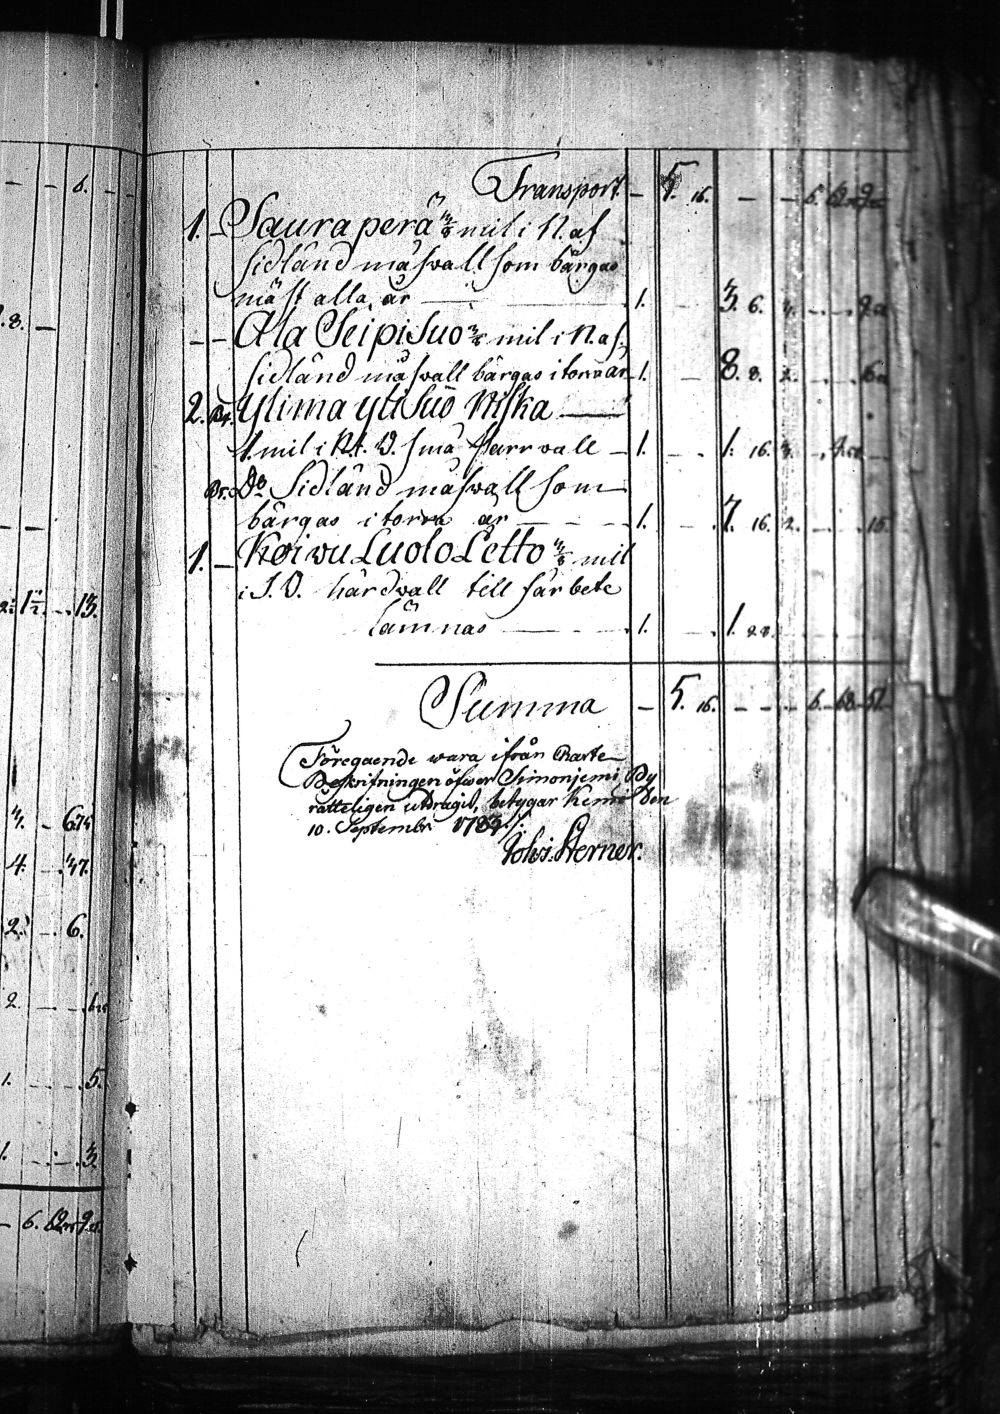 6.
8. –
2. 1½ . . 13.
3. – 6.75
4. – . 37.
2. – . 6.
2. – – .
1. . . . 5.
1. . . . 3.
– 6.
Transport. – 5. 16. – – 6.
1. – Saura perä 3/8 mil i N. af
sidländ måsvall som bärgas
mäst alla år — 1. – 3. 6.
– – Ala Seipi Suo mil i N. af
sidländ måsvall bärgas i torra år 1. – 8. 8. 2.
2. Br. Ylima yli Suo Niska —
1 mil i N. O. små starrvall – 1. – . 1. 16.
Br. c D:o Sidländ måsvall som
bärgas i torra år – – – 1. – . 7. 16. 2. . . . 15.
1. – Koivu Luolo Letto mil
i S. O. hårdvall till fårbete
lämnas — 1. – . 1. 28.
Summa – 5. 16. – – – 6. 68. 51.
Föregaende wara ifrån Charte
Beskrifningen öfwer Simonjemi By
rätteligen utdragit, betygar Kemi den
10. Septembr: 1783 ./.
Johs. Sterner.